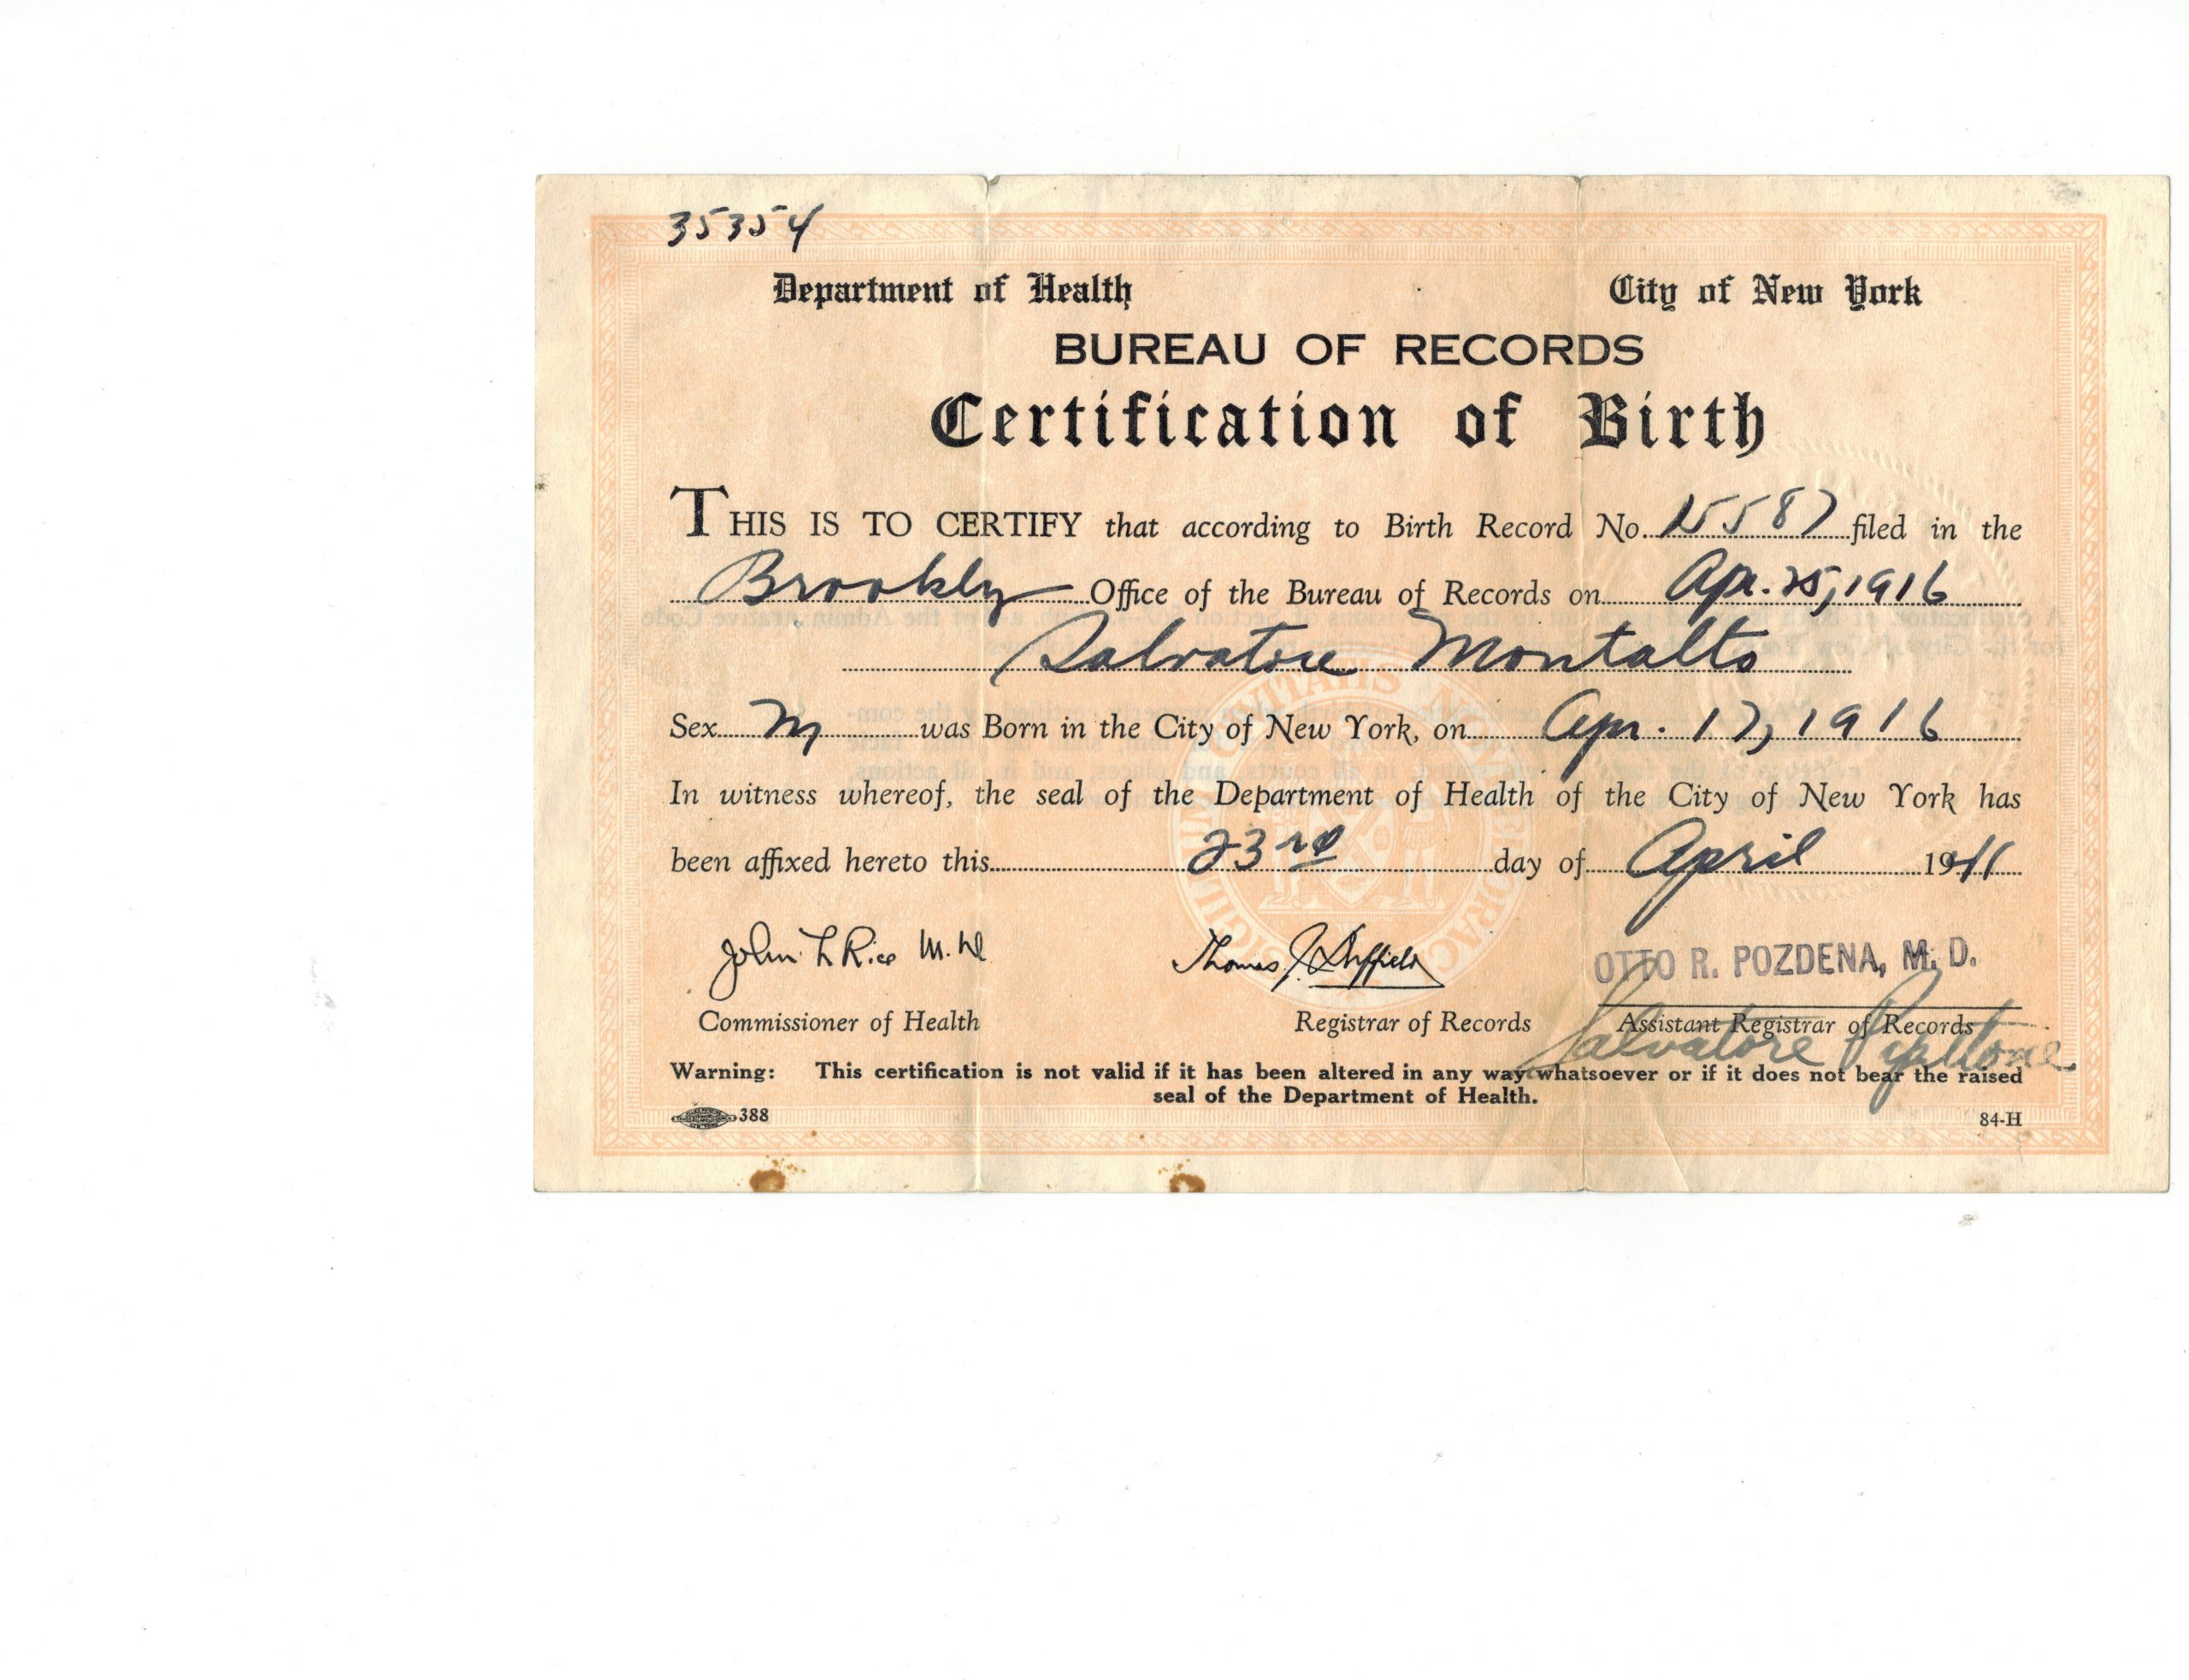 35354
Department of Health City of New York
BUREAU OF RECORDS
Certification of Birth
THIS IS TO CERTIFY that according to Birth Record No. 15587 filed in the
Brooklyn Office of the Bureau of Records on Apr. 25, 1916
Salvatore Montalto
Sex M was Born in the City of New York, on Apr. 17, 1916
In witness whereof, the seal of the Department of Health of the City of New York has
been affixed hereto this 23rd day of April 1941
John L Rice M.D. Thomas J. Duffield OTTO R. POZDENA, M. D.
Commissioner of Health Registrar of Records Assistant Registrar of Records
Salvatore
Warning: This certification is not valid if it has been altered in any way whatsoever or if it does not bear the raised
seal of the Department of Health.
388 84-H